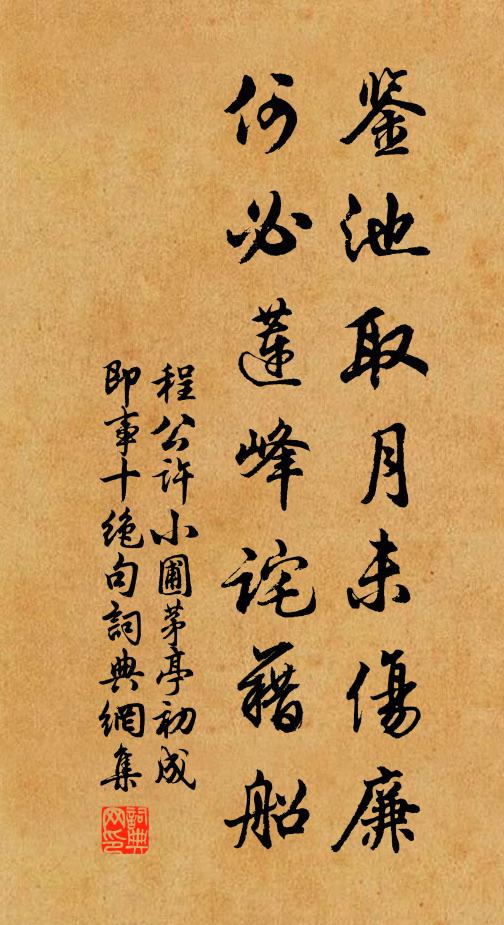 鉴池取月未傷廉
何必蓮峰詫藕船
程公許小圃茅亭初成
即事十絶句詞典網集
詞典网印